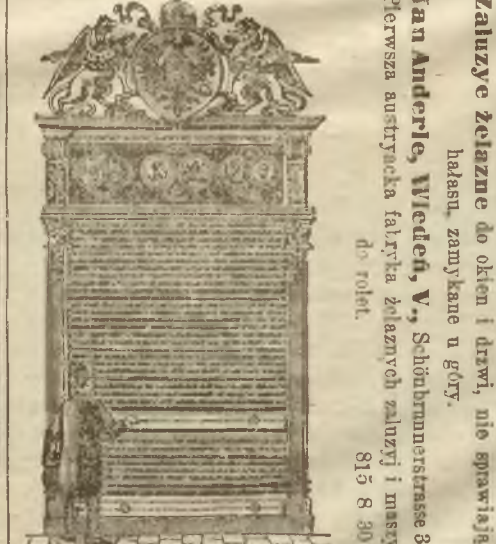 Żaluzye żelazne do okien i drzwi, nie sprawiają
hałasu, zamykane u góry.
Jan Anderle, Wiedeń, V., Schönbrunnerstrasse 3
Pierwsza austryacka fabryka żelaznych zaluzyj i maszy
do rolet.
815 8 30